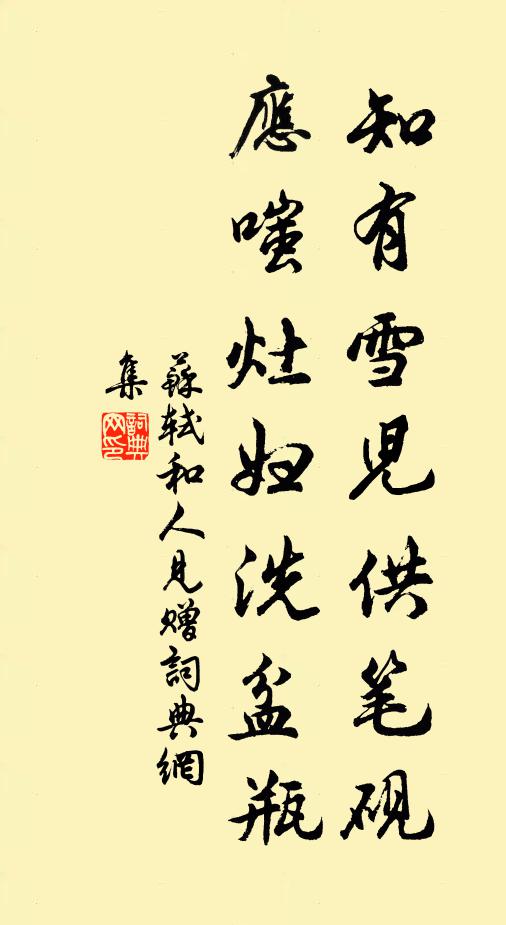 知有雪児供笔硯
應嗤灶妇洗盆瓶
蘇軾和人見贈詞典網
集
詞典
网印